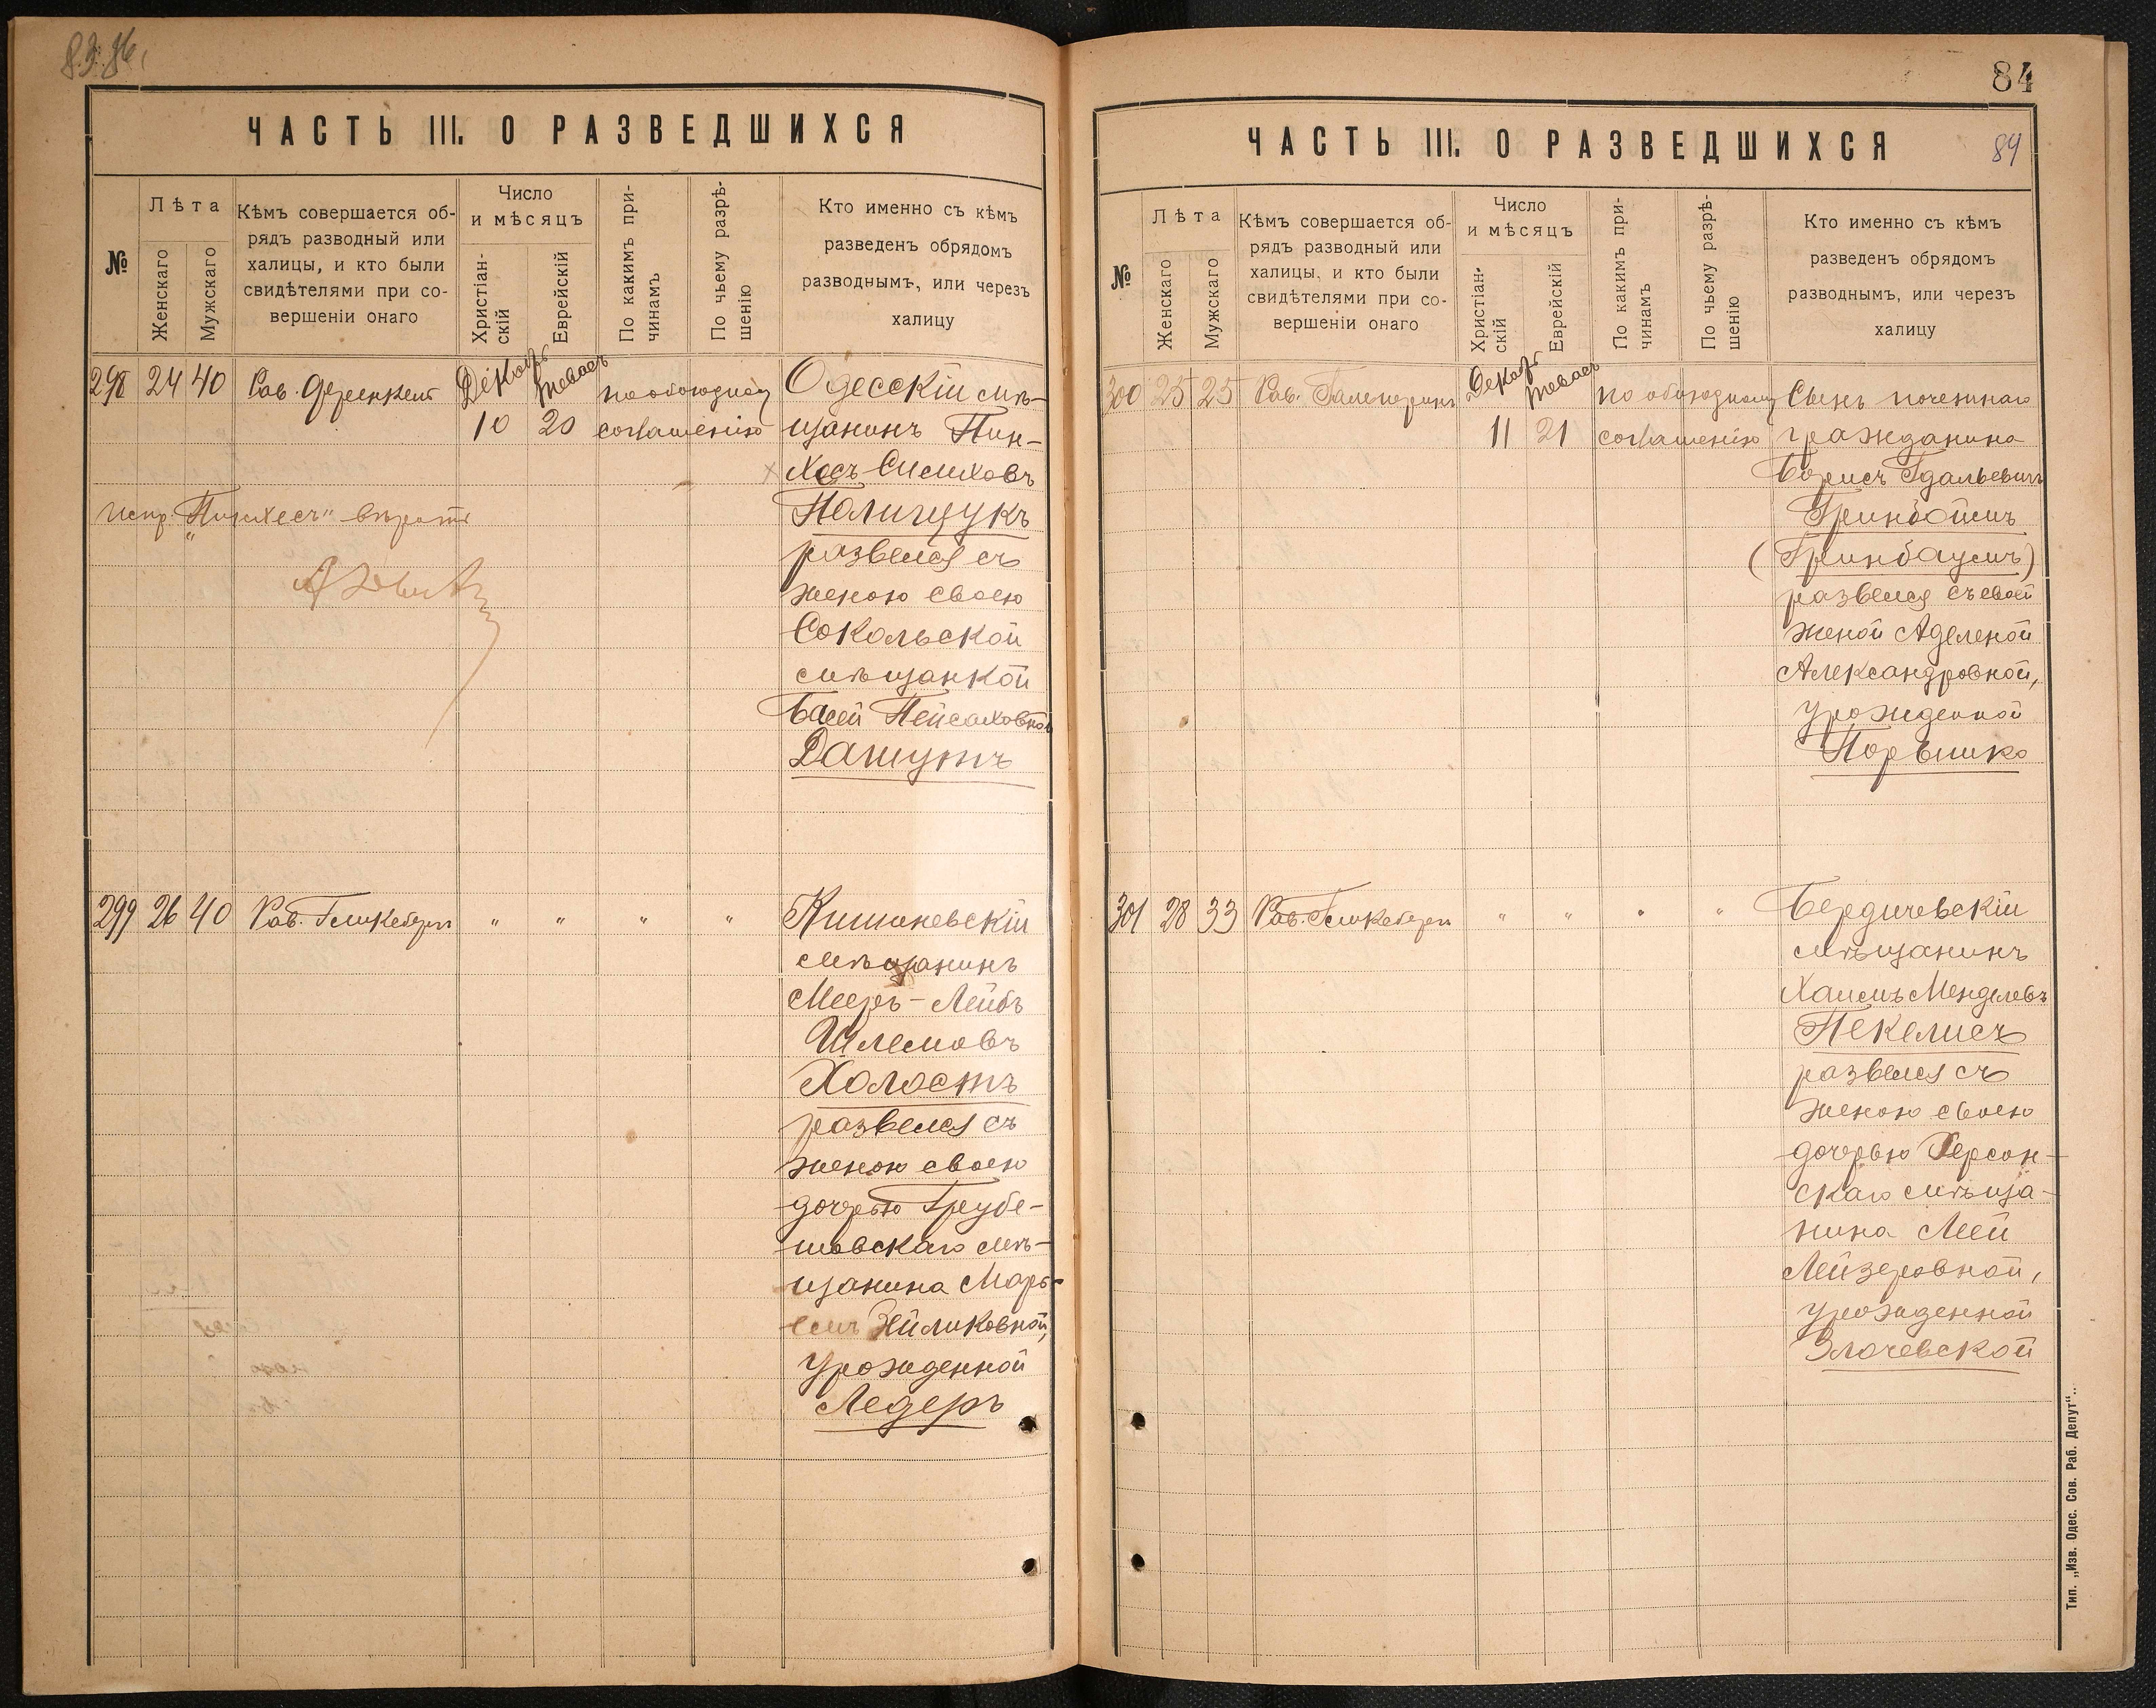 ЧАСТЬ III. О РАЗВЕДШИХСЯ
№
Лѣта
Женскаго
Мужскаго
Кѣмъ совершается об-
рядъ разводный или
халицы, и кто были
свидѣтелями при со-
вершеніи онаго
Число
и мѣсяцъ
Христіан-
скій
Еврейскій
По какимъ при-
чинамъ
По чьему разрѣ-
шенію
Кто именно съ кѣмъ
разведенъ обрядомъ
разводнымъ, или черезъ
халицу
298 24 40 Рав. Декабр Теваес по обоюдному Одесскій мѣ-
10 20 соглашенію щанинъ Пин-
хесъ Симховъ
испр. "Пинхесъ" вѣрить Полищукъ
развелся съ
женою своею
Сокольской
мѣщанкой
Басей Пейсаховной
Дашутъ
299 26 40 Рав. Гликсберг " " " " Кишиневскій
мѣщанинъ
Мееръ-Лейбъ
Шлемовъ
Холостъ
развелся съ
женою своею
дочерью Грубе-
шовскаго мѣ-
щанина Марь-
емъ Зейликовной,
урожденной
Ледеръ
84
ЧАСТЬ III. О РАЗВЕДШИХСЯ 84
№
Лѣта
Женскаго
Мужскаго
Кѣмъ совершается об-
рядъ разводный или
халицы, и кто были
свидѣтелями при со-
вершеніи онаго
Число
и мѣсяцъ
Христіан-
скій
Еврейскій
По какимъ при-
чинамъ
По чьему разрѣ-
шенію
Кто именно съ кѣмъ
разведенъ обрядомъ
разводнымъ, или черезъ
халицу
300 25 25 Рав. Гальперинъ Декабр Теваес по обоюдному Сынъ почетнаго
11 21 соглашенію гражданина
Борисъ Гдальевичъ
Гринбоймъ
(Гринбаумъ)
развелся съ своей
женой Аделеной
Александровной,
урожденной
301 28 33 Рав. Гликсберг " " " " Бердичевскій
мѣщанинъ
Хаимъ Менделевъ
Пекелисъ
развелся съ
женою своею
дочерью Херсон-
скаго мѣща-
нина Леей
Лейзеровной,
урожденной
Злочевской
Тип. „Изв. Одес. Сов. Раб. Депут".